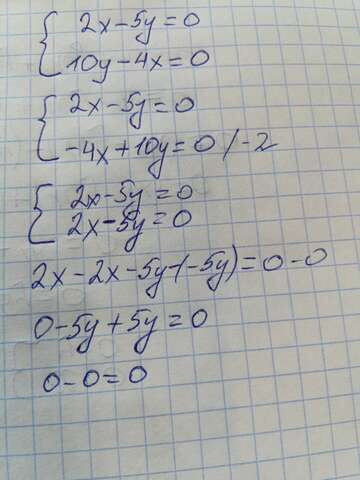 2x-5y=0
10y-4x=0
2x-5y=0
-4x+10y=0/-2
2x-5y=0
2x-5y=0
2x-2x-5y-(-5y)=0-0
0-5y+5y=0
0-0=0